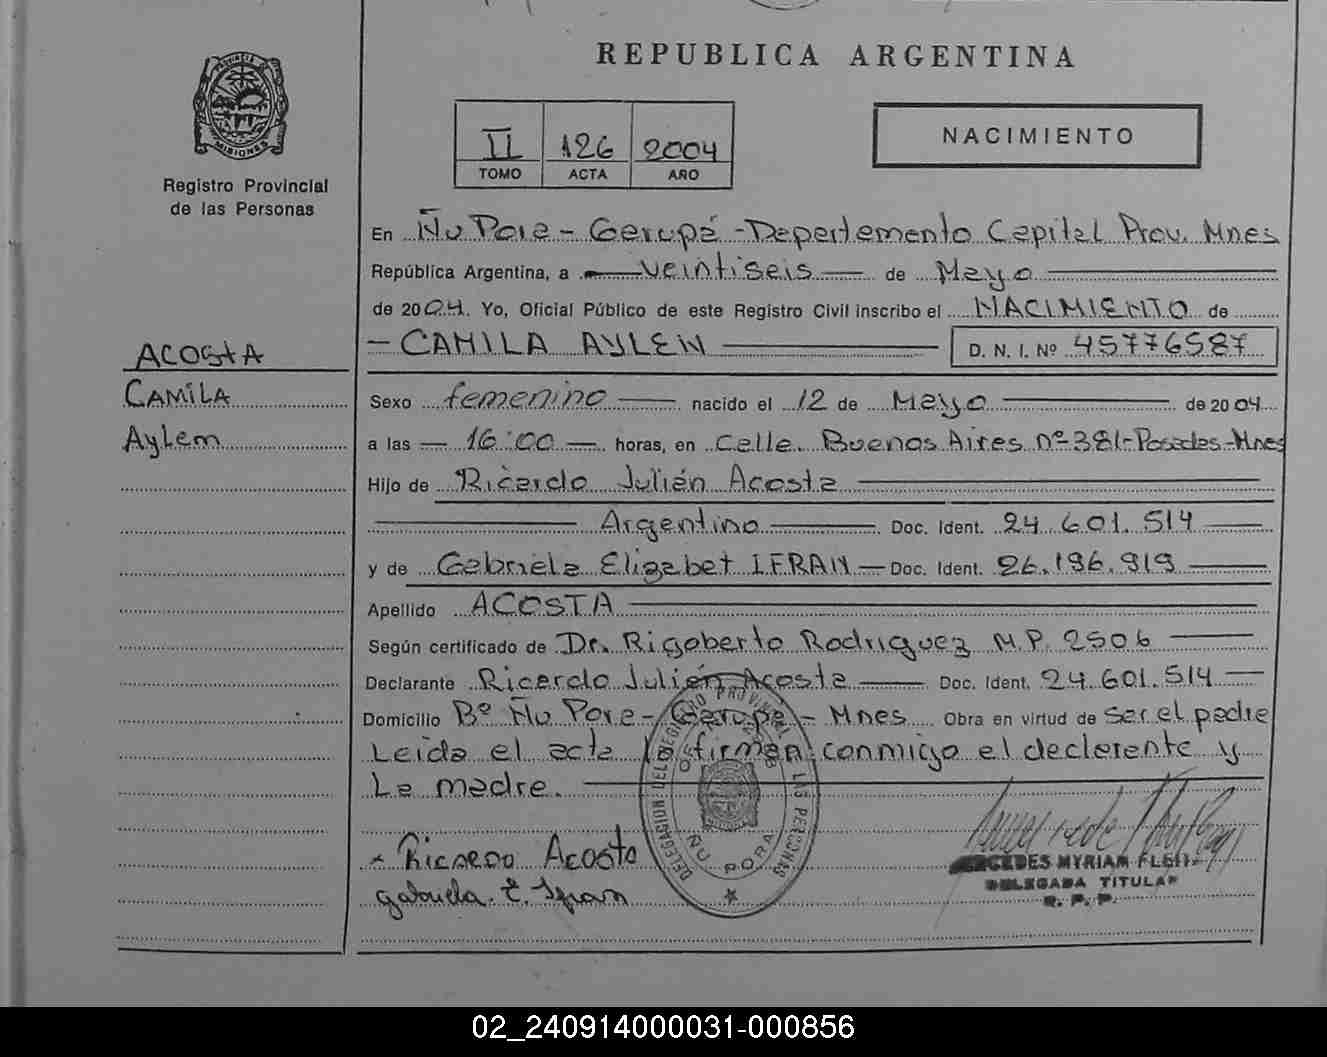 REPUBLICA ARGENTINA
PROVINCIA DE MISIONES
Registro Provincial
de las Personas
II 126 2004
TOMO ACTA AÑO
NACIMIENTO
En Ñu Pora - Garupá - Departamento Capital Prov. Mnes
República Argentina, a veintiseis de Mayo
de 2004. Yo, Oficial Público de este Registro Civil inscribo el NACIMIENTO de
- CAMILA AYLEN D. N. I. Nº 45776587
ACOSTA
CAMILA
Aylem
Sexo femenino nacido el 12 de Mayo de 2004
a las 16:00 horas, en Calle Buenos Aires nº 381-Posadas-Mnes
Hijo de Ricardo Julián Acosta
Argentino Doc. Ident. 24.601.514
y de Gabriela Elizabet IFRAN Doc. Ident. 26.196.919
Apellido ACOSTA
Según certificado de Dr. Rigoberto Rodriguez M.P. 2506
Declarante Ricardo Julián Acosta Doc. Ident. 24.601.514
Domicilio Bº Ñu Pora - Garupa - Mnes Obra en virtud de ser el padre
Leida el acta la firman conmigo el declarante y
La madre.
DELEGACION DEL REGISTRO PROVINCIAL DE LAS PERSONAS
ÑU PORA
Ricardo Acosta
gabriela. E. Ifran
MYRIAM
DELEGADA TITULAR
R. P. P.
02_240914000031-000856